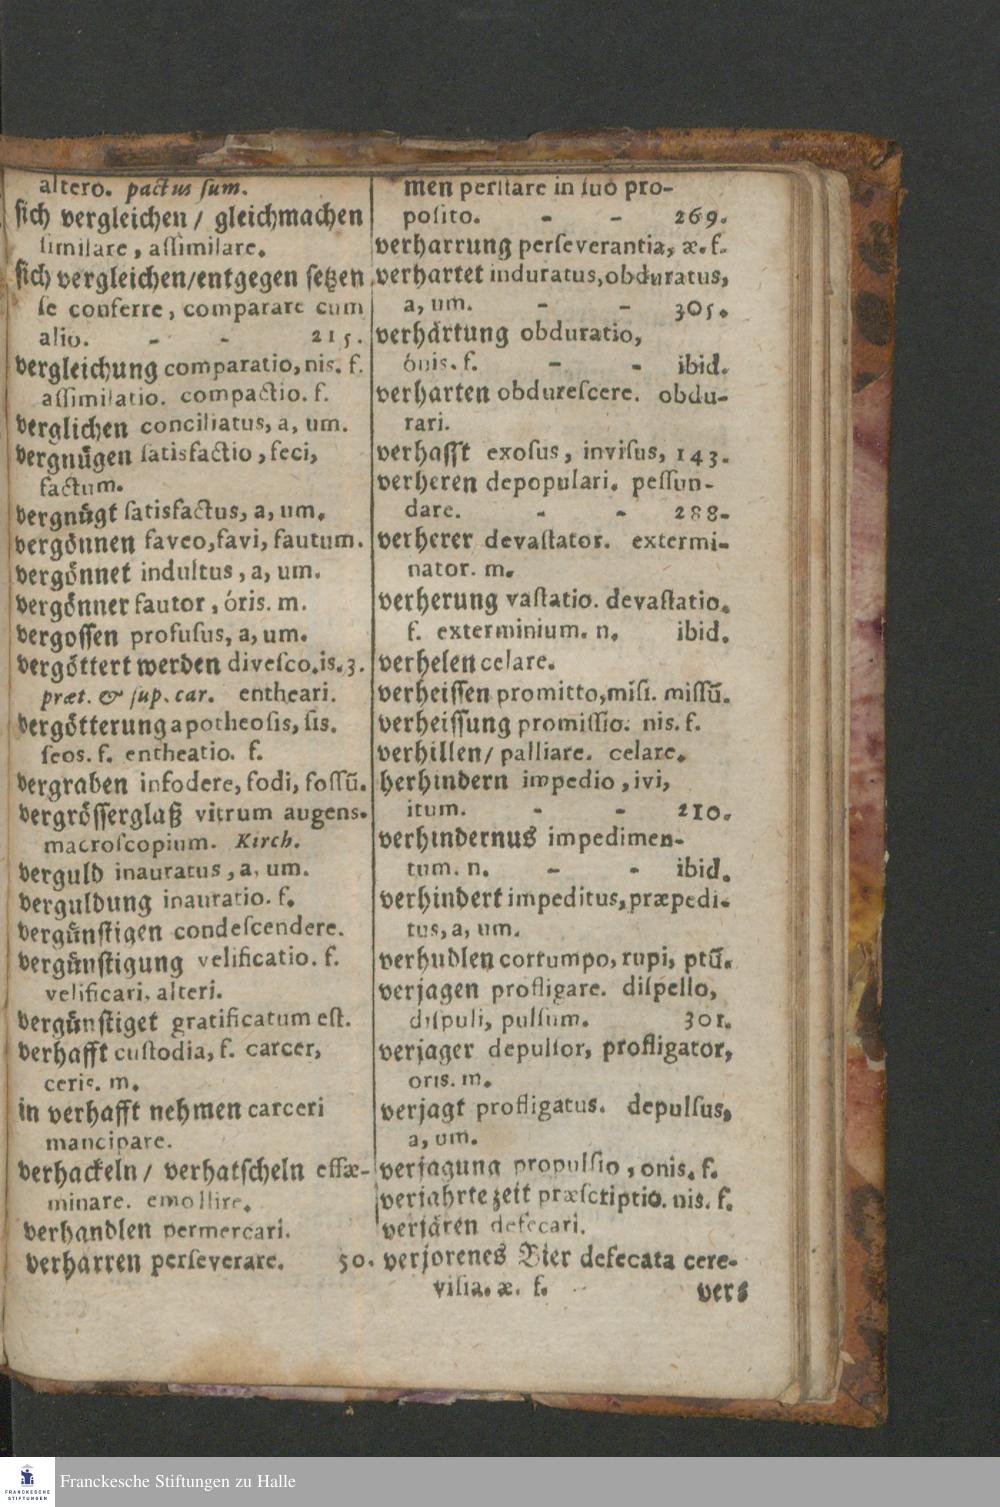 altero. pactus sum.
sich vergleichen / gleichmachen
similare, assimilare.
sich vergleichen/entgegen setzen
se conferre, comparare cum
alio. - - 215.
vergleichung comparatio, nis. f.
assimilatio. compactio. f.
verglichen conciliatus, a, um.
vergnügen satisfactio, feci,
factum.
vergnügt satisfactus, a, um.
vergönnen faveo, favi, fautum.
vergönnet indultus, a, um.
vergönner fautor, óris. m.
vergossen profusus, a, um.
vergöttert werden divesco.is.3.
præt. & sup. car. entheari.
vergötterung apotheosis, sis.
seos. f. entheatio. f.
vergraben infodere, fodi, fossū.
vergrösserglaß vitrum augens.
macroscopium. Kirch.
verguld inauratus, a, um.
verguldung inauratio. f.
vergünstigen condescendere.
vergünstigung velificatio. f.
velificari, alteri.
vergünstiget gratificatum est.
verhafft custodia, f. carcer,
ceris. m.
in verhafft nehmen carceri
mancipare.
verhackeln / verhatscheln effæ-
minare. emollire.
verhandlen permercari.
verharren perseverare. 50.
men perstare in suo pro-
posito. - - 269.
verharrung perseverantia, æ. f.
verhartet induratus, obduratus,
a, um. - - 305.
verhärtung obduratio,
ónis. f. - - ibid.
verharten obdurescere. obdu-
rari.
verhasst exosus, invisus, 143.
verheren depopulari. pessun-
dare. - - 288.
verherer devastator. extermi-
nator. m.
verherung vastatio. devastatio.
f. exterminium. n. ibid.
verhelen celare.
verheissen promitto, misi. missū.
verheissung promissio. nis. f.
verhillen/ palliare. celare.
herhindern impedio, ivi,
itum. - - 210.
verhindernus impedimen-
tum. n. - - ibid.
verhindert impeditus, præpedi-
tus, a, um.
verhudlen corrumpo, rupi, ptū.
verjagen profligare. dispello,
dispuli, pulsum. 301.
verjager depulsor, profligator,
oris. m.
verjagt profligatus. depulsus,
a, um.
verjagung propulsio, onis. f.
verjahrte zeit præscriptio. nis. f.
verjären defecari.
verjorenes Bier defecata cere-
visia. æ. f.
vers
Franckesche Stiftungen zu Halle
FRANCKESCHE
STIFTUNGEN